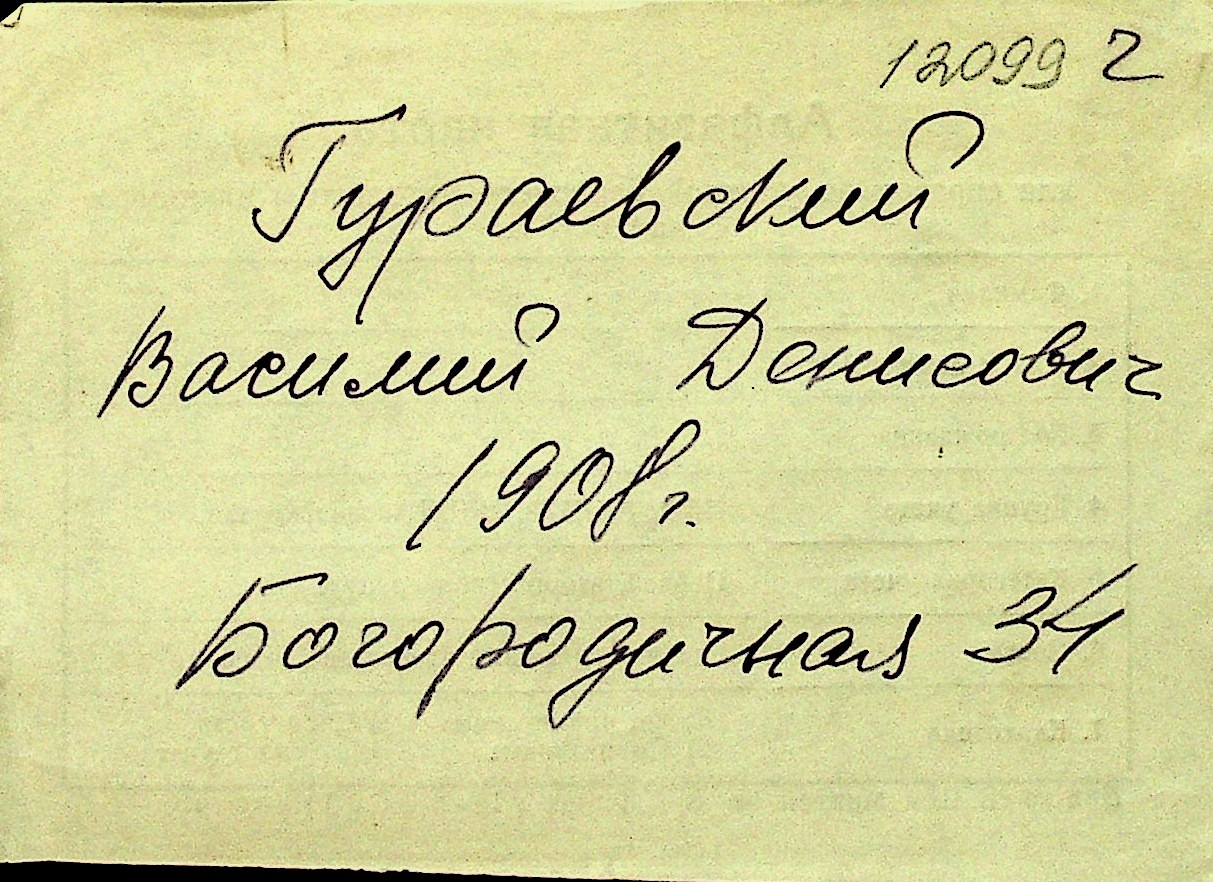 12099 2
Гураевский
Василий Денисович
1908 г.
Богородичная 34